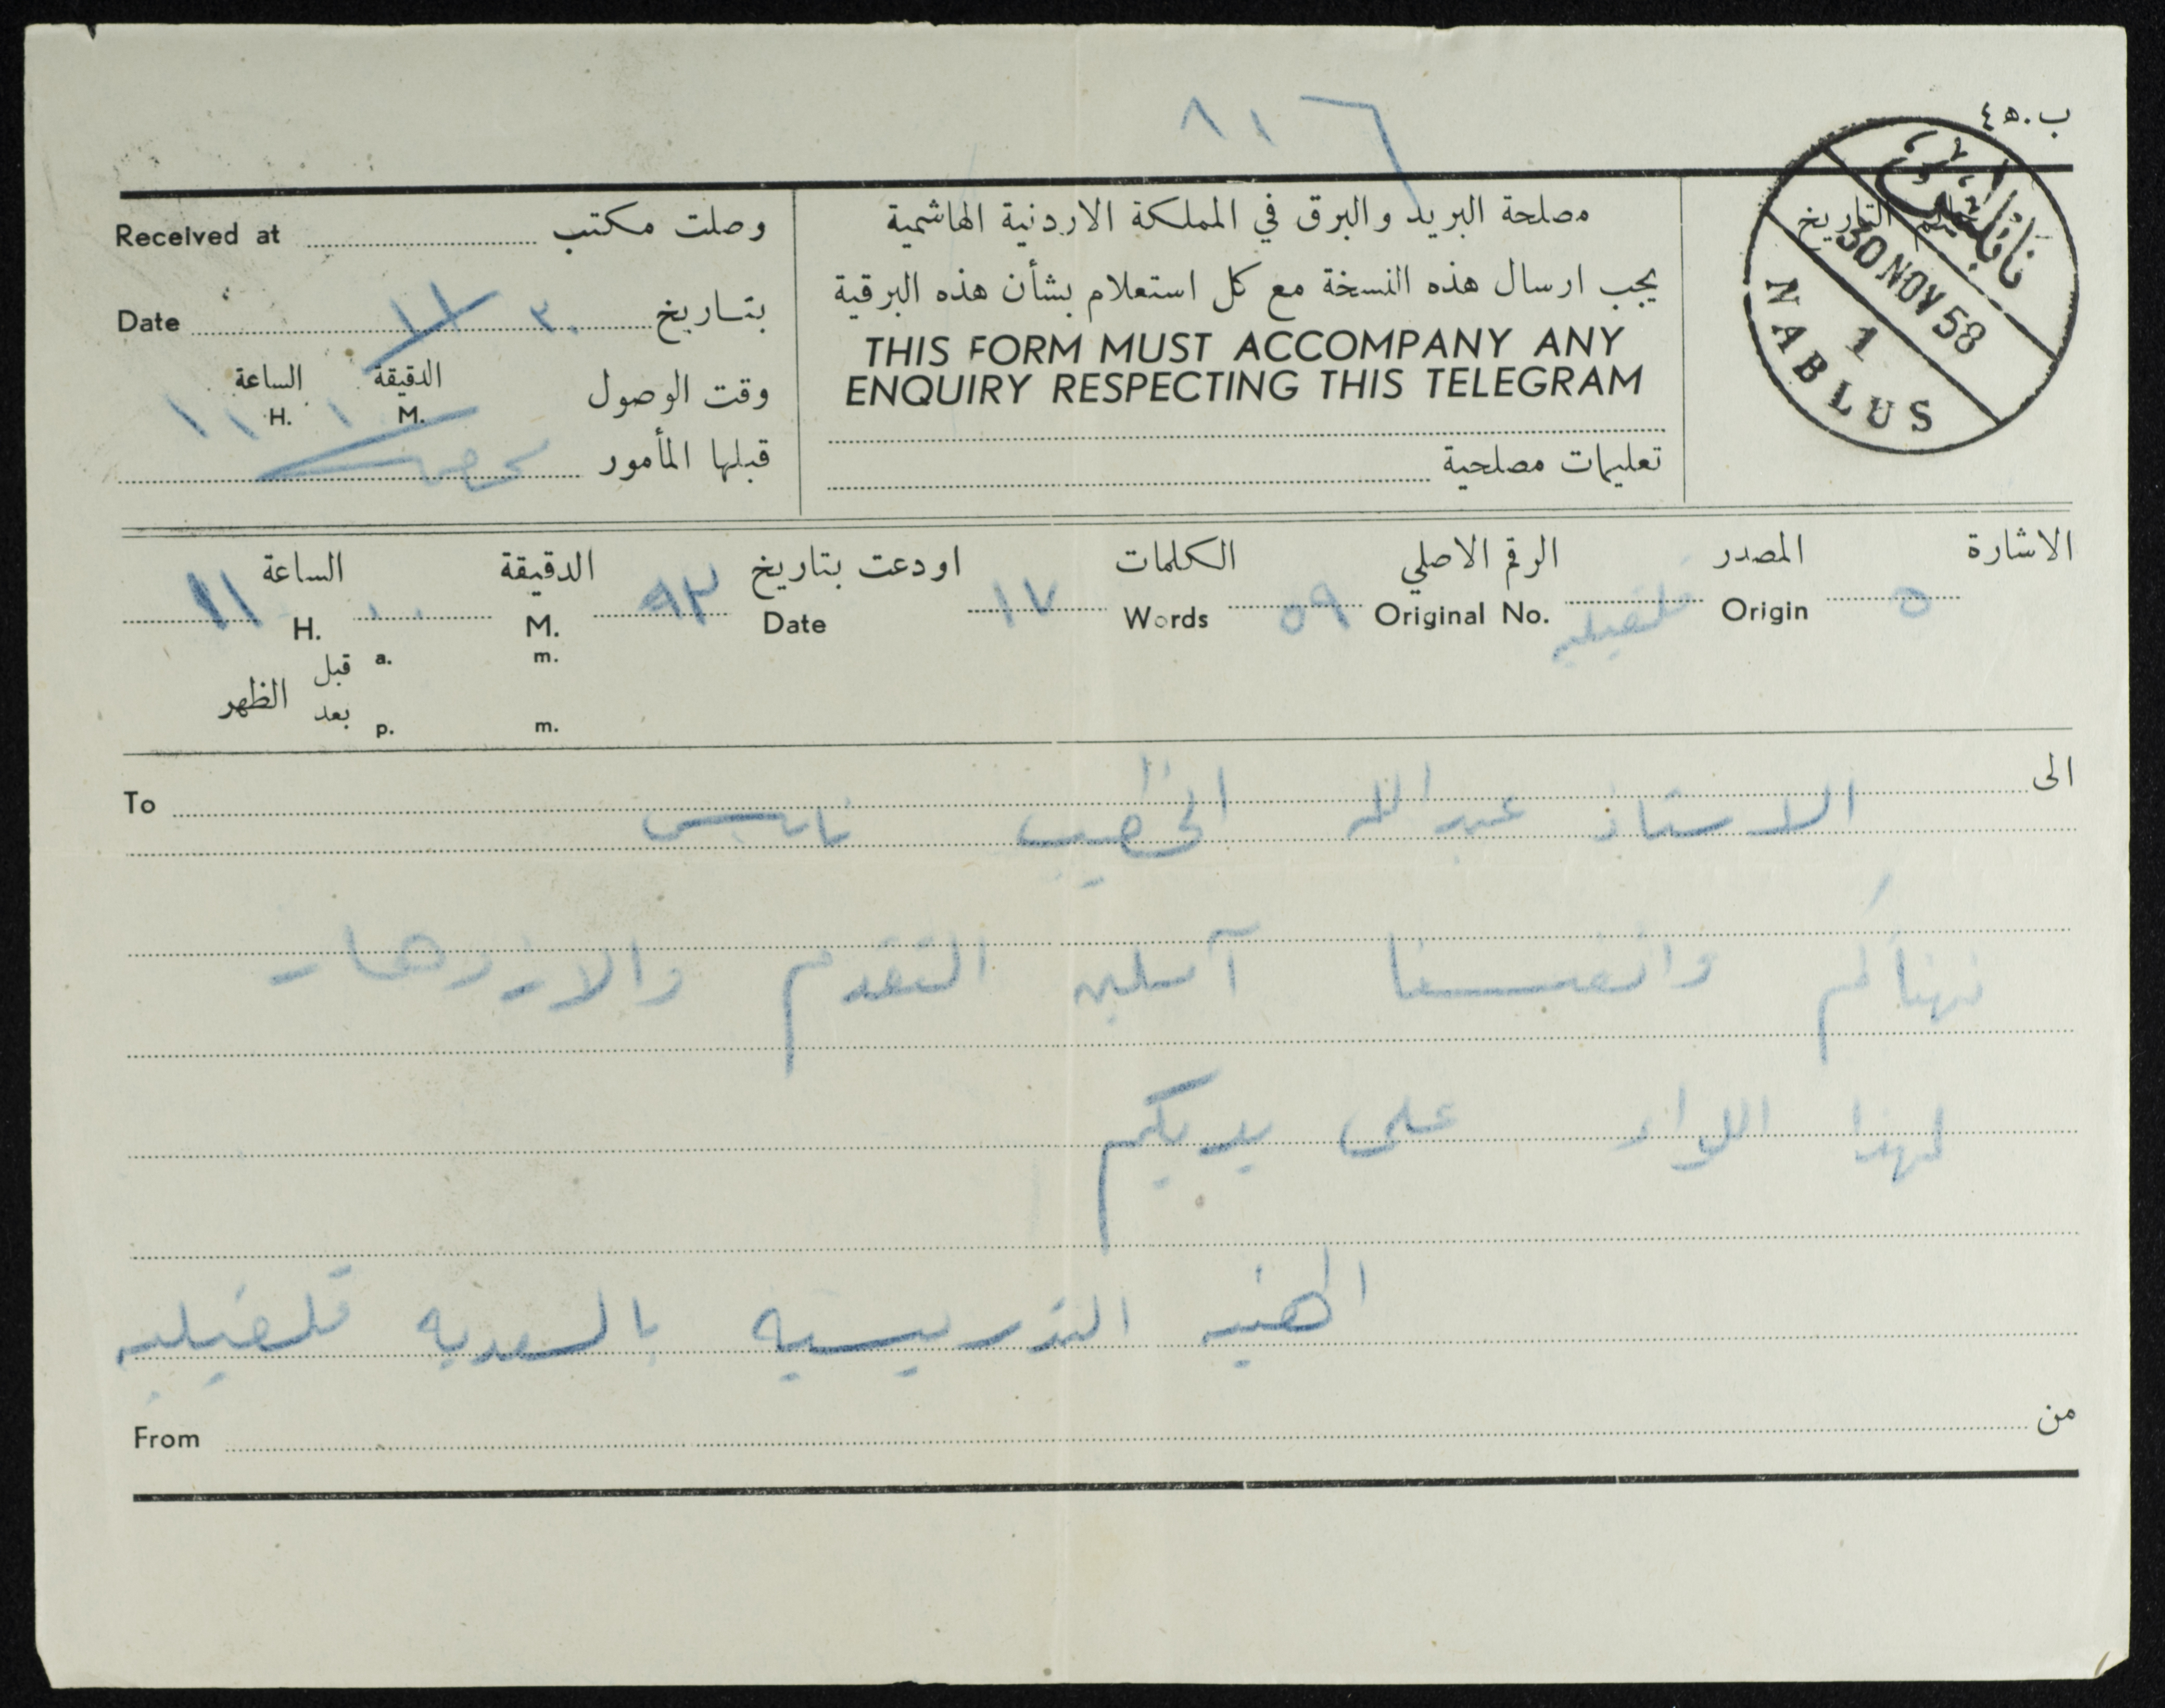 ٨١٦
ب.٥٤
نابلس
30 NOV 58
1
NABLUS
مصلحة البريد والبرق في المملكة الاردنية الهاشمية
يجب ارسال هذه النسخة مع كل استعلام بشأن هذه البرقية
THIS FORM MUST ACCOMPANY ANY
ENQUIRY RESPECTING THIS TELEGRAM
تعليمات مصلحية
وصلت مكتب Received at
بتاريخ ٣٠ / ١١ Date
وقت الوصول الدقيقة الساعة
M. ١٠ H. ١١
قبلها المأمور
الاشارة المصدر الرقم الاصلي الكلمات اودعت بتاريخ الدقيقة الساعة
٥ Origin قلقيليه Original No. ٥٩ Words ١٧ Date M. ٠٠ H. ١١
قبل a. m.
الظهر
بعد p. m.
الى To
الاستاذ عبدالله الخطيب نابلس
نهنأكم وانفسنا آملين التقدم والازدهار
لهذا اللواء على يديكم
الهيئه التدريسيه بالسعديه قلقيليه
من From